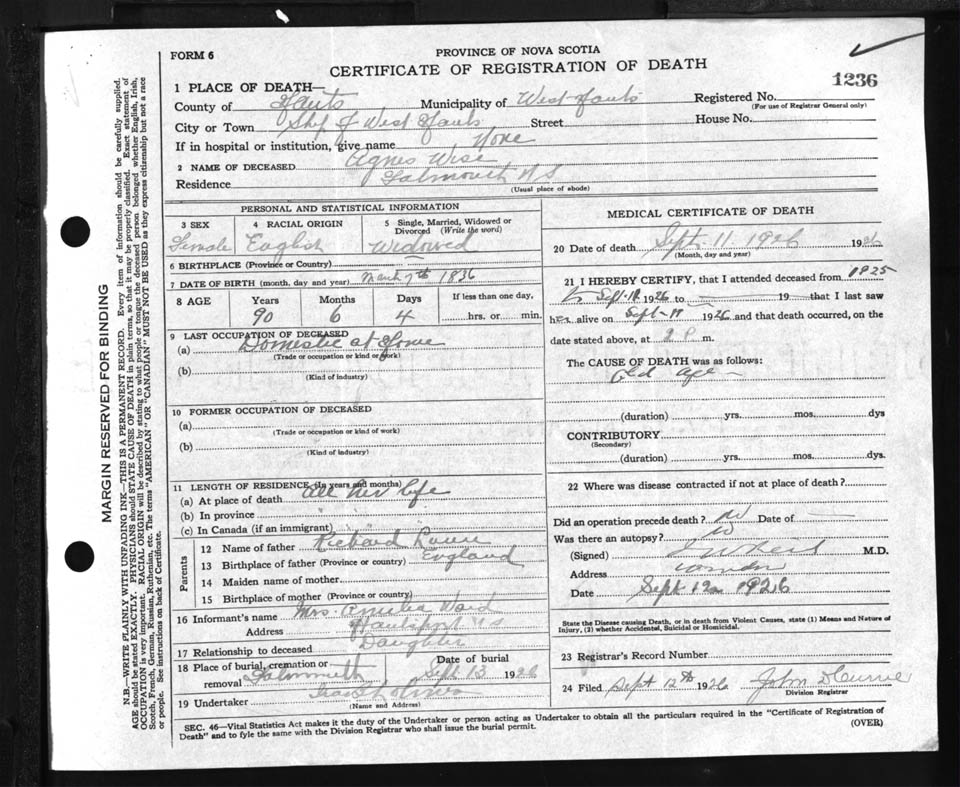 FORM 6
PROVINCE OF NOVA SCOTIA
CERTIFICATE OF REGISTRATION OF DEATH
1236
1 PLACE OF DEATH—
County of Hants Municipality of West Hants Registered No.
(For use of Registrar General only)
City or Town Shp of West Hants Street House No.
If in hospital or institution, give name None
2 NAME OF DECEASED Agnes Wise
Residence Falmouth N S
(Usual place of abode)
PERSONAL AND STATISTICAL INFORMATION
3 SEX 4 RACIAL ORIGIN 5 Single, Married, Widowed or Divorced (Write the word)
Female English Widowed
6 BIRTHPLACE (Province or Country)
7 DATE OF BIRTH (month, day and year) March 7th 1836
8 AGE Years Months Days If less than one day,
90 6 4 hrs. or min.
9 LAST OCCUPATION OF DECEASED
(a) Domestic at Home
(Trade or occupation or kind of work)
(b)
(Kind of industry)
10 FORMER OCCUPATION OF DECEASED
(a)
(Trade or occupation or kind of work)
(b)
(Kind of industry)
11 LENGTH OF RESIDENCE (In years and months)
(a) At place of death All her life
(b) In province " " "
(c) In Canada (if an immigrant)
Parents
12 Name of father Richard
13 Birthplace of father (Province or country) England
14 Maiden name of mother
15 Birthplace of mother (Province or country)
16 Informant's name Mrs. Amelia Ward
Address Hantsport N S
17 Relationship to deceased Daughter
18 Place of burial, cremation or removal Falmouth Date of burial Sept 13 1926
19 Undertaker
(Name and Address)
MEDICAL CERTIFICATE OF DEATH
20 Date of death Sept. 11 1926 1926
(Month, day and year)
21 I HEREBY CERTIFY, that I attended deceased from 1925
to Sept. 11 1926 to 19 that I last saw
her alive on Sept - 11 1926 and that death occurred, on the
date stated above, at 2 P. m.
The CAUSE OF DEATH was as follows:
Old age
(duration) yrs. mos. dys
CONTRIBUTORY
(Secondary)
(duration) yrs. mos. dys.
22 Where was disease contracted if not at place of death?
Did an operation precede death? No Date of
Was there an autopsy? No
(Signed) M.D.
Address Windsor
Date Sept 12 1926
State the Disease causing Death, or in death from Violent Causes, state (1) Means and Nature of
Injury, (2) whether Accidental, Suicidal or Homicidal.
23 Registrar's Record Number
24 Filed Sept 12th 1926 John
Division Registrar
SEC. 46—Vital Statistics Act makes it the duty of the Undertaker or person acting as Undertaker to obtain all the particulars required in the "Certificate of Registration of
Death" and to fyle the same with the Division Registrar who shall issue the burial permit.
(OVER)
MARGIN RESERVED FOR BINDING
N.B.—WRITE PLAINLY WITH UNFADING INK—THIS IS A PERMANENT RECORD. Every item of information should be carefully supplied.
AGE should be stated EXACTLY. PHYSICIANS should STATE CAUSE OF DEATH in plain terms, so that it may be properly classified. Exact statement of
OCCUPATION is very important. RACIAL ORIGIN will be described by stating to what people or tongue the deceased person belonged whether English, Irish,
Scotch, French, German, Russian, Ruthenian, etc. The terms "AMERICAN" OR "CANADIAN" MUST NOT BE USED as they express citizenship but not a race
or people. See instructions on back of Certificate.